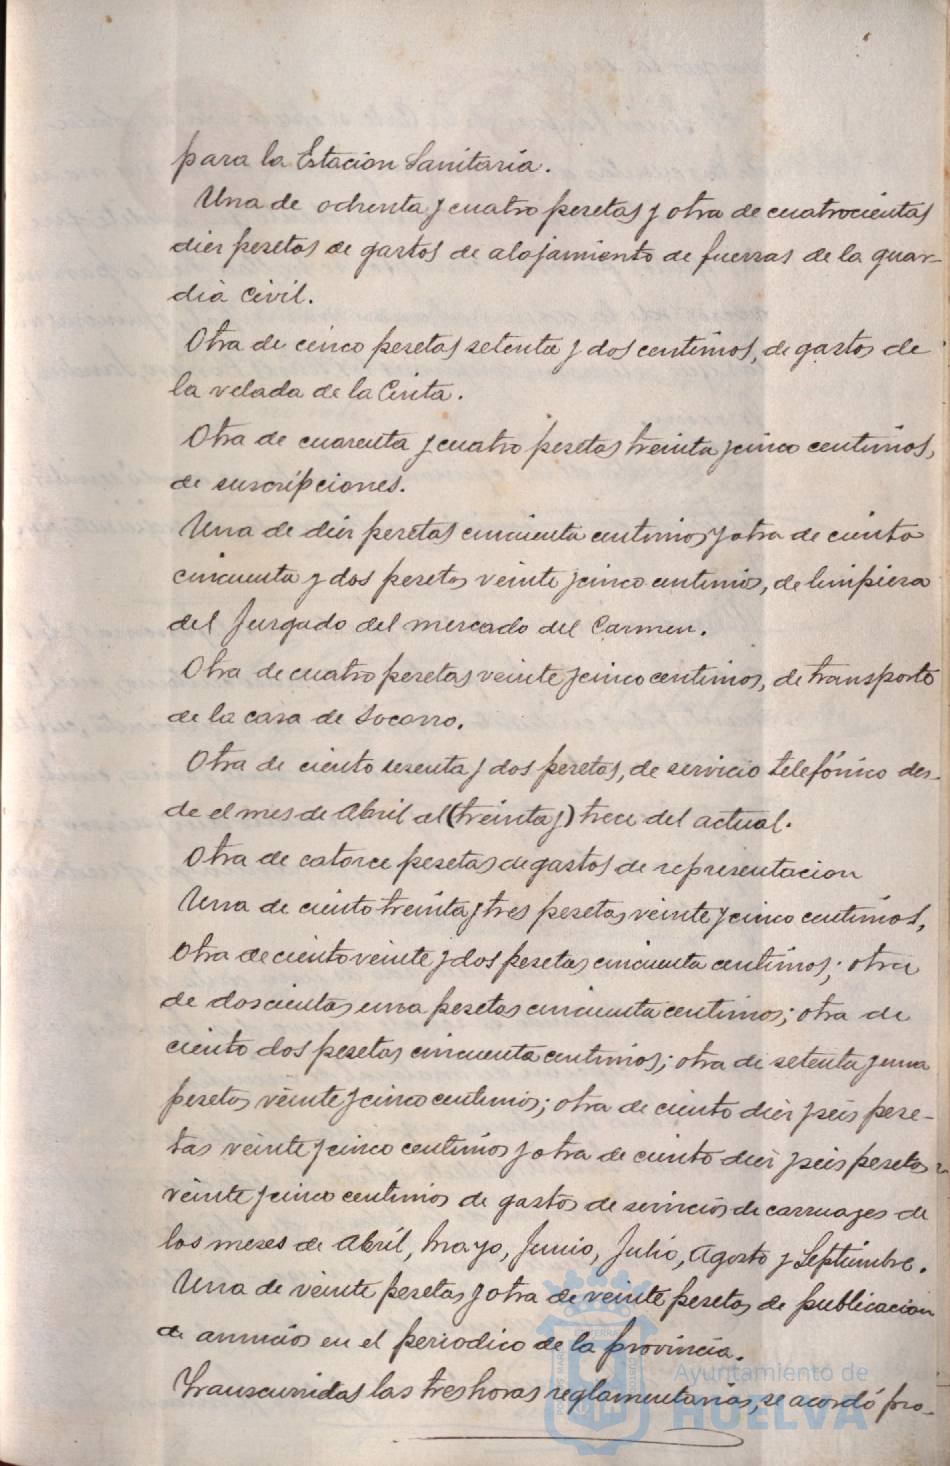 para la Estacion Sanitaria.
Una de ochenta y cuatro pesetas y otra de cuatrocientas
diez pesetas de gastos de alojamiento de fuerzas de la guar-
dia Civil.
Otra de cinco pesetas setenta y dos centimos, de gastos de
la velada de la Cinta.
Otra de cuarenta y cuatro pesetas treinta y cinco centimos,
de suscripciones.
Una de diez pesetas cincuenta centimos y otra de ciento
cincuenta y dos pesetas veinte y cinco centimos, de limpieza
del Juzgado del mercado del Carmen.
Otra de cuatro pesetas veinte y cinco centimos, de transporte
de la casa de Socorro.
Otra de ciento sesenta y dos pesetas, de servicio telefónico des-
de el mes de Abril al (treinta y) trece del actual.
Otra de catorce pesetas de gastos de representacion
Una de ciento treinta y tres pesetas veinte y cinco centimos,
Otra de ciento veinte y dos pesetas cincuenta centimos; otra
de doscientas una pesetas cincuenta centimos; otra de
ciento dos pesetas cincuenta centimos; otra de setenta y una
pesetas veinte y cinco centimos; otra de ciento diez y seis pese-
tas veinte y cinco centimos y otra de ciento diez y seis pesetas
veinte y cinco centimos de gastos de servicios de carruages de
los meses de Abril, Mayo, Junio, Julio, Agosto y Septiembre.
Una de veinte pesetas y otra de veinte pesetas de publicacion
de anuncios en el periodico de la provincia.
Transcurridas las tres horas reglamentarias, se acordó pro-
Ayuntamiento de
HUELVA